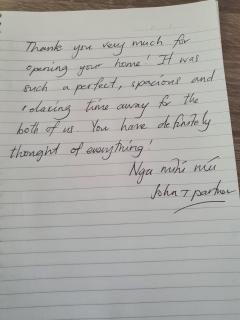 Thank you very much for
opening your home! It was
such a perfect, spacious and
relaxing time away for the
both of us. You have definitely
thought of everything!
Nga mihi nui
John & partner